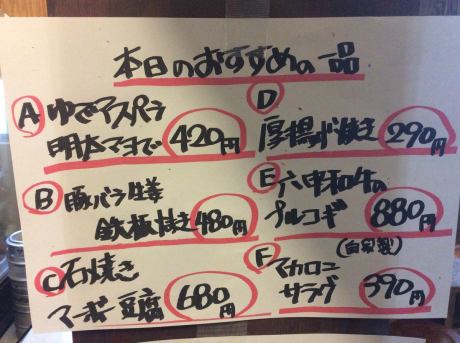 本日のおすすめの一品
A ゆでアスパラ
明太マヨで 420円
B 豚バラ生姜
鉄板焼き 480円
C 石焼き
マーボー豆腐 680円
D
厚揚げ焼き 290円
E 六甲和牛の
プルコギ 880円
(自家製)
F マカロニ
サラダ 390円